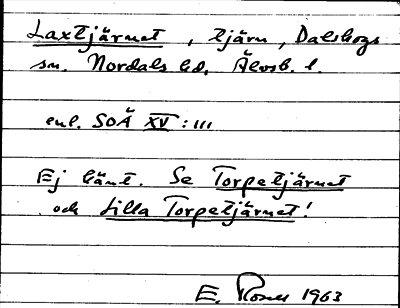 Laxtjärnet, tjärn, Dalskogs
sn. Nordals hd, Älvsb. l.
enl. SOÄ XV: 111
Ej känt. Se Torpetjärnet
och Lilla Torpetjärnet!
E. Rosell 1963